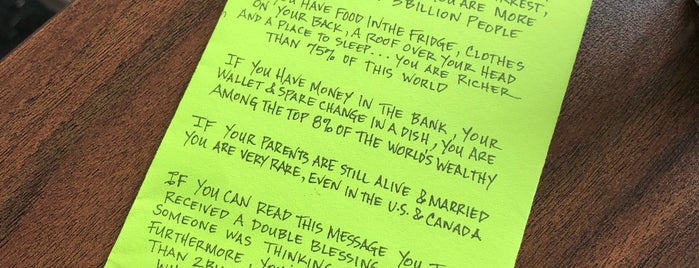 ARREST,
YOU ARE MORE
3 BILLION PEOPLE
YOU HAVE FOOD INTHE FRIDGE, CLOTHES
ON YOUR BACK, A ROOF OVER YOUR HEAD
AND A PLACE TO SLEEP... YOU ARE RICHER
THAN 75% OF THIS WORLD
IF YOU HAVE MONEY IN THE BANK, YOUR
WALLET & SPARE CHANGE IN A DISH, YOU ARE
AMONG THE TOP 8% OF THE WORLD'S WEALTHY
IF YOUR PARENTS ARE STILL ALIVE & MARRIED
YOU ARE VERY RARE, EVEN IN THE U.S. & CANADA
IF YOU CAN READ THIS MESSAGE YOU
RECEIVED A DOUBLE BLESSING
SOMEONE WAS THINKING
FURTHERMORE, YOU
THAN 2 BILL